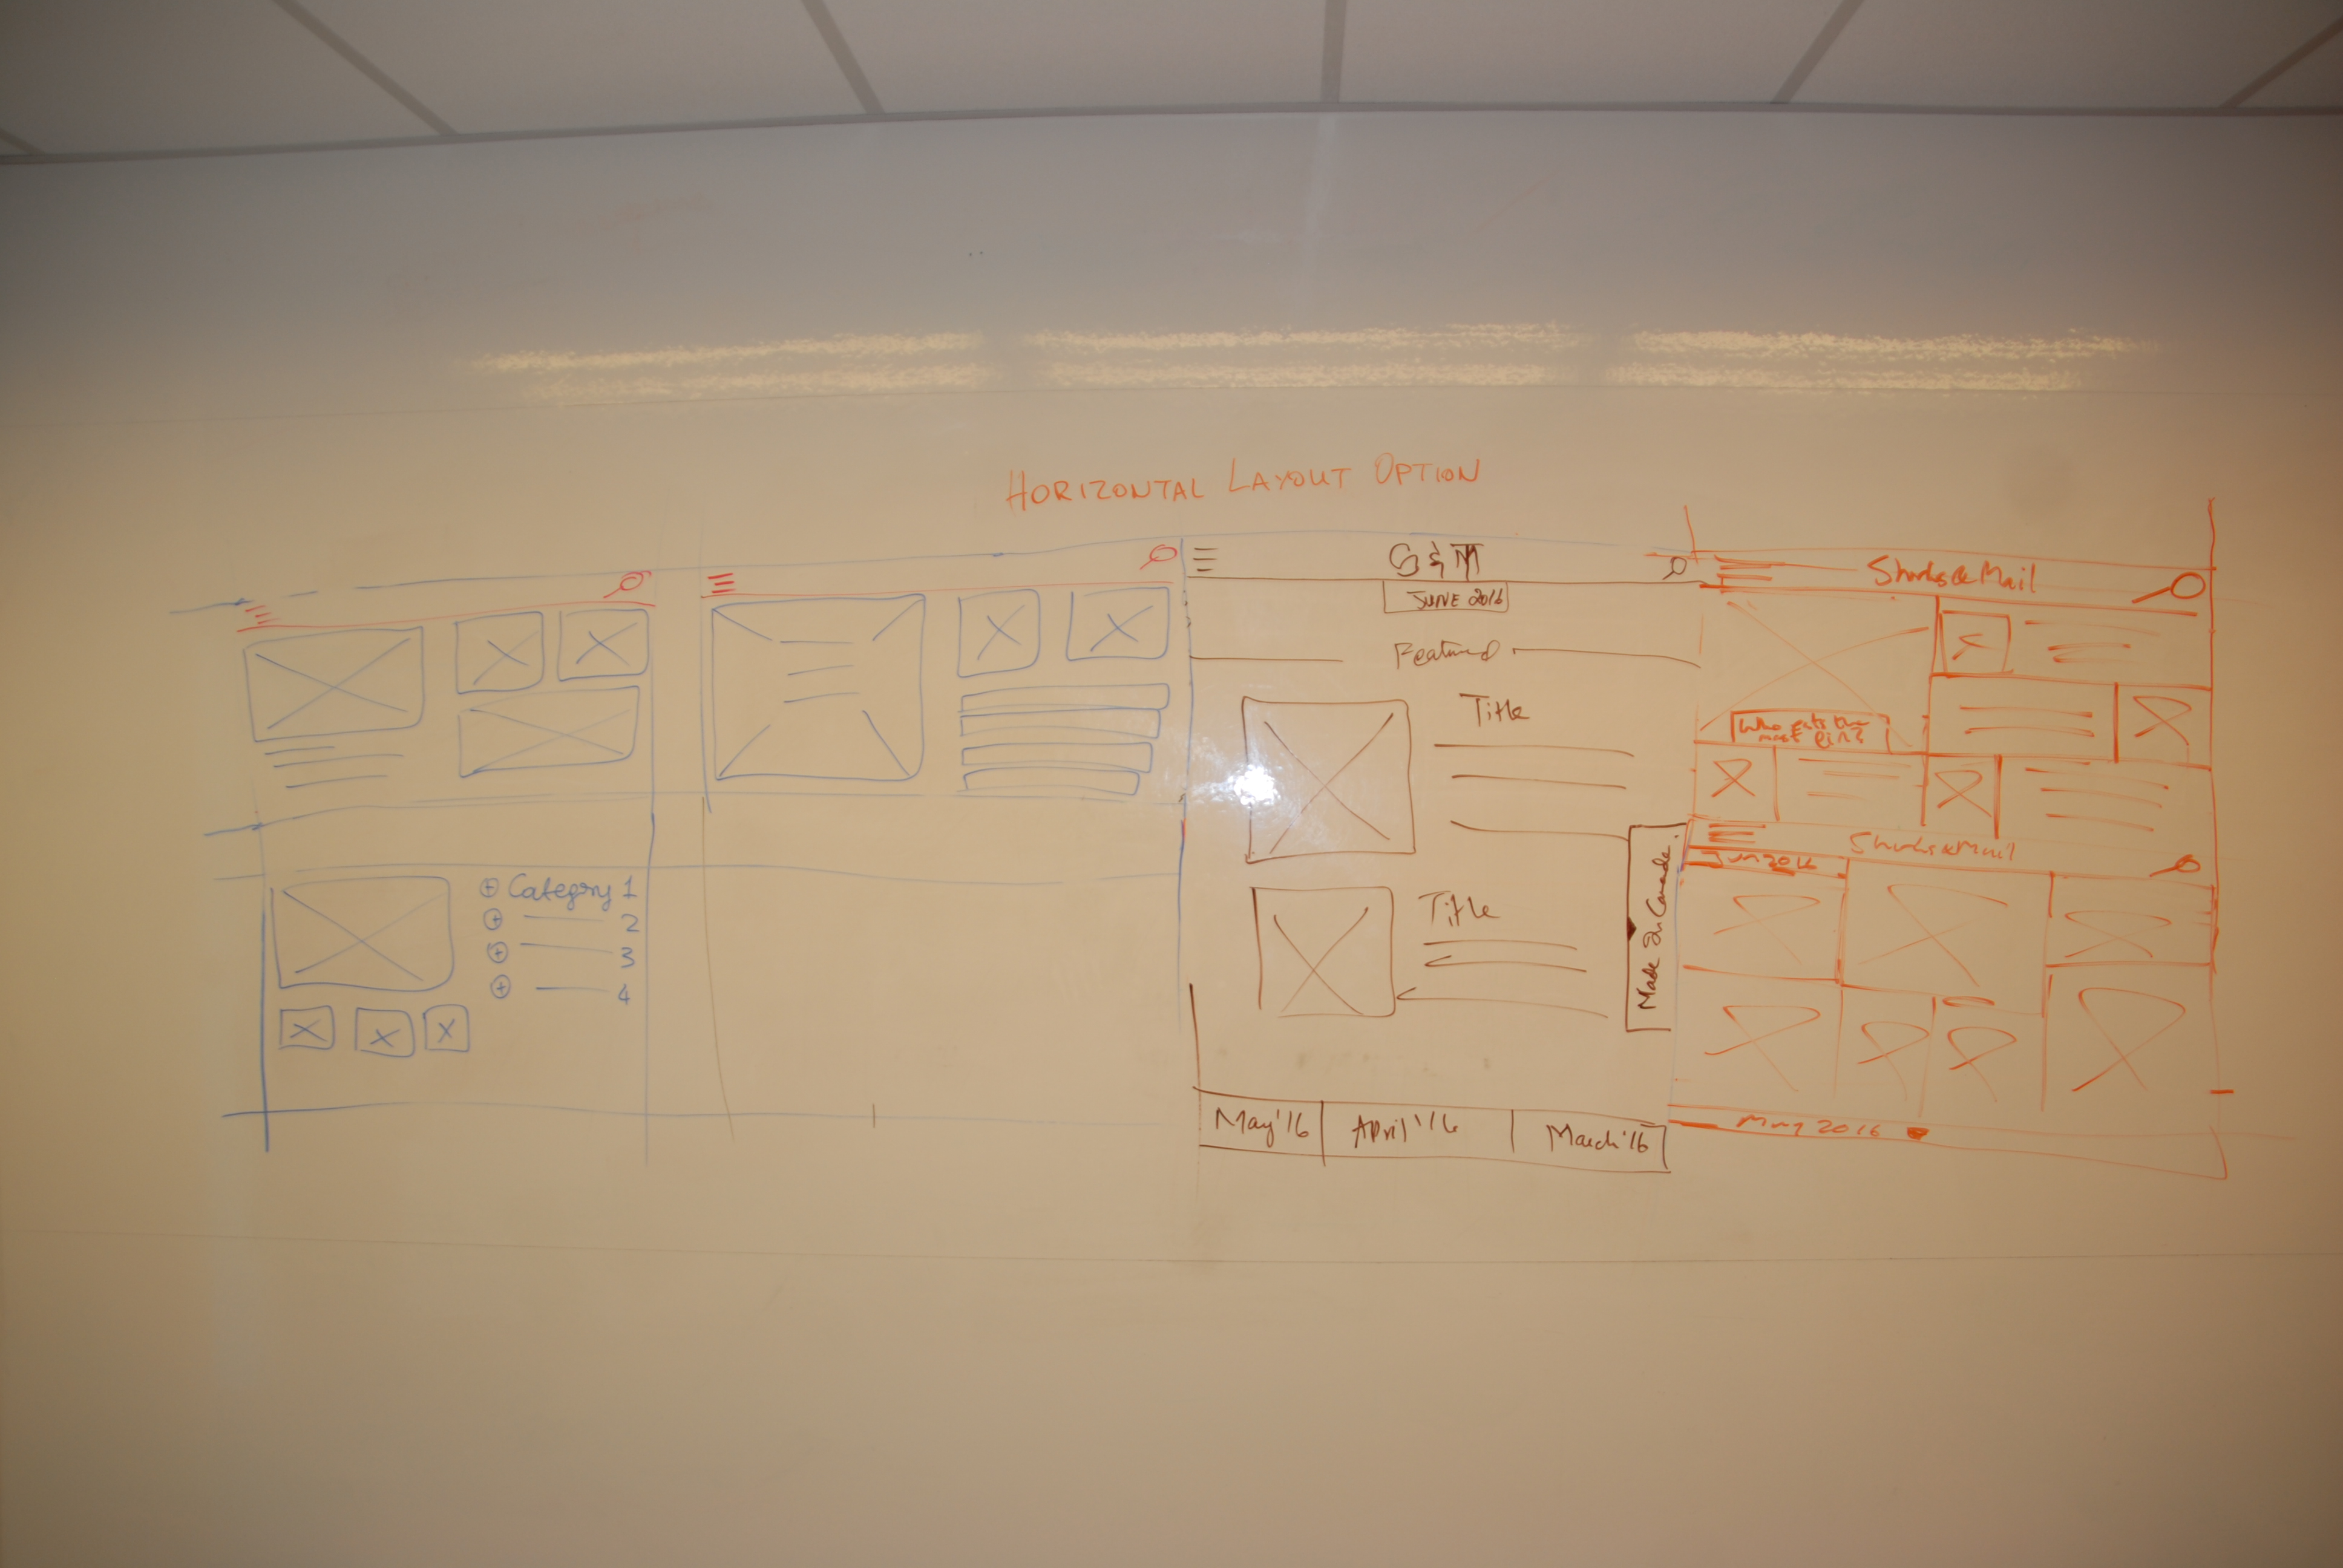 HORIZONTAL LAYOUT OPTION
Category 1
2
3
4
G & M
JUNE 2016
Featured
Title
Title
Made In Canada
May '16
April '16
March '16
Sharks & Mail
Who eats the
most
Sharks & Mail
Jun 2016
May 2016